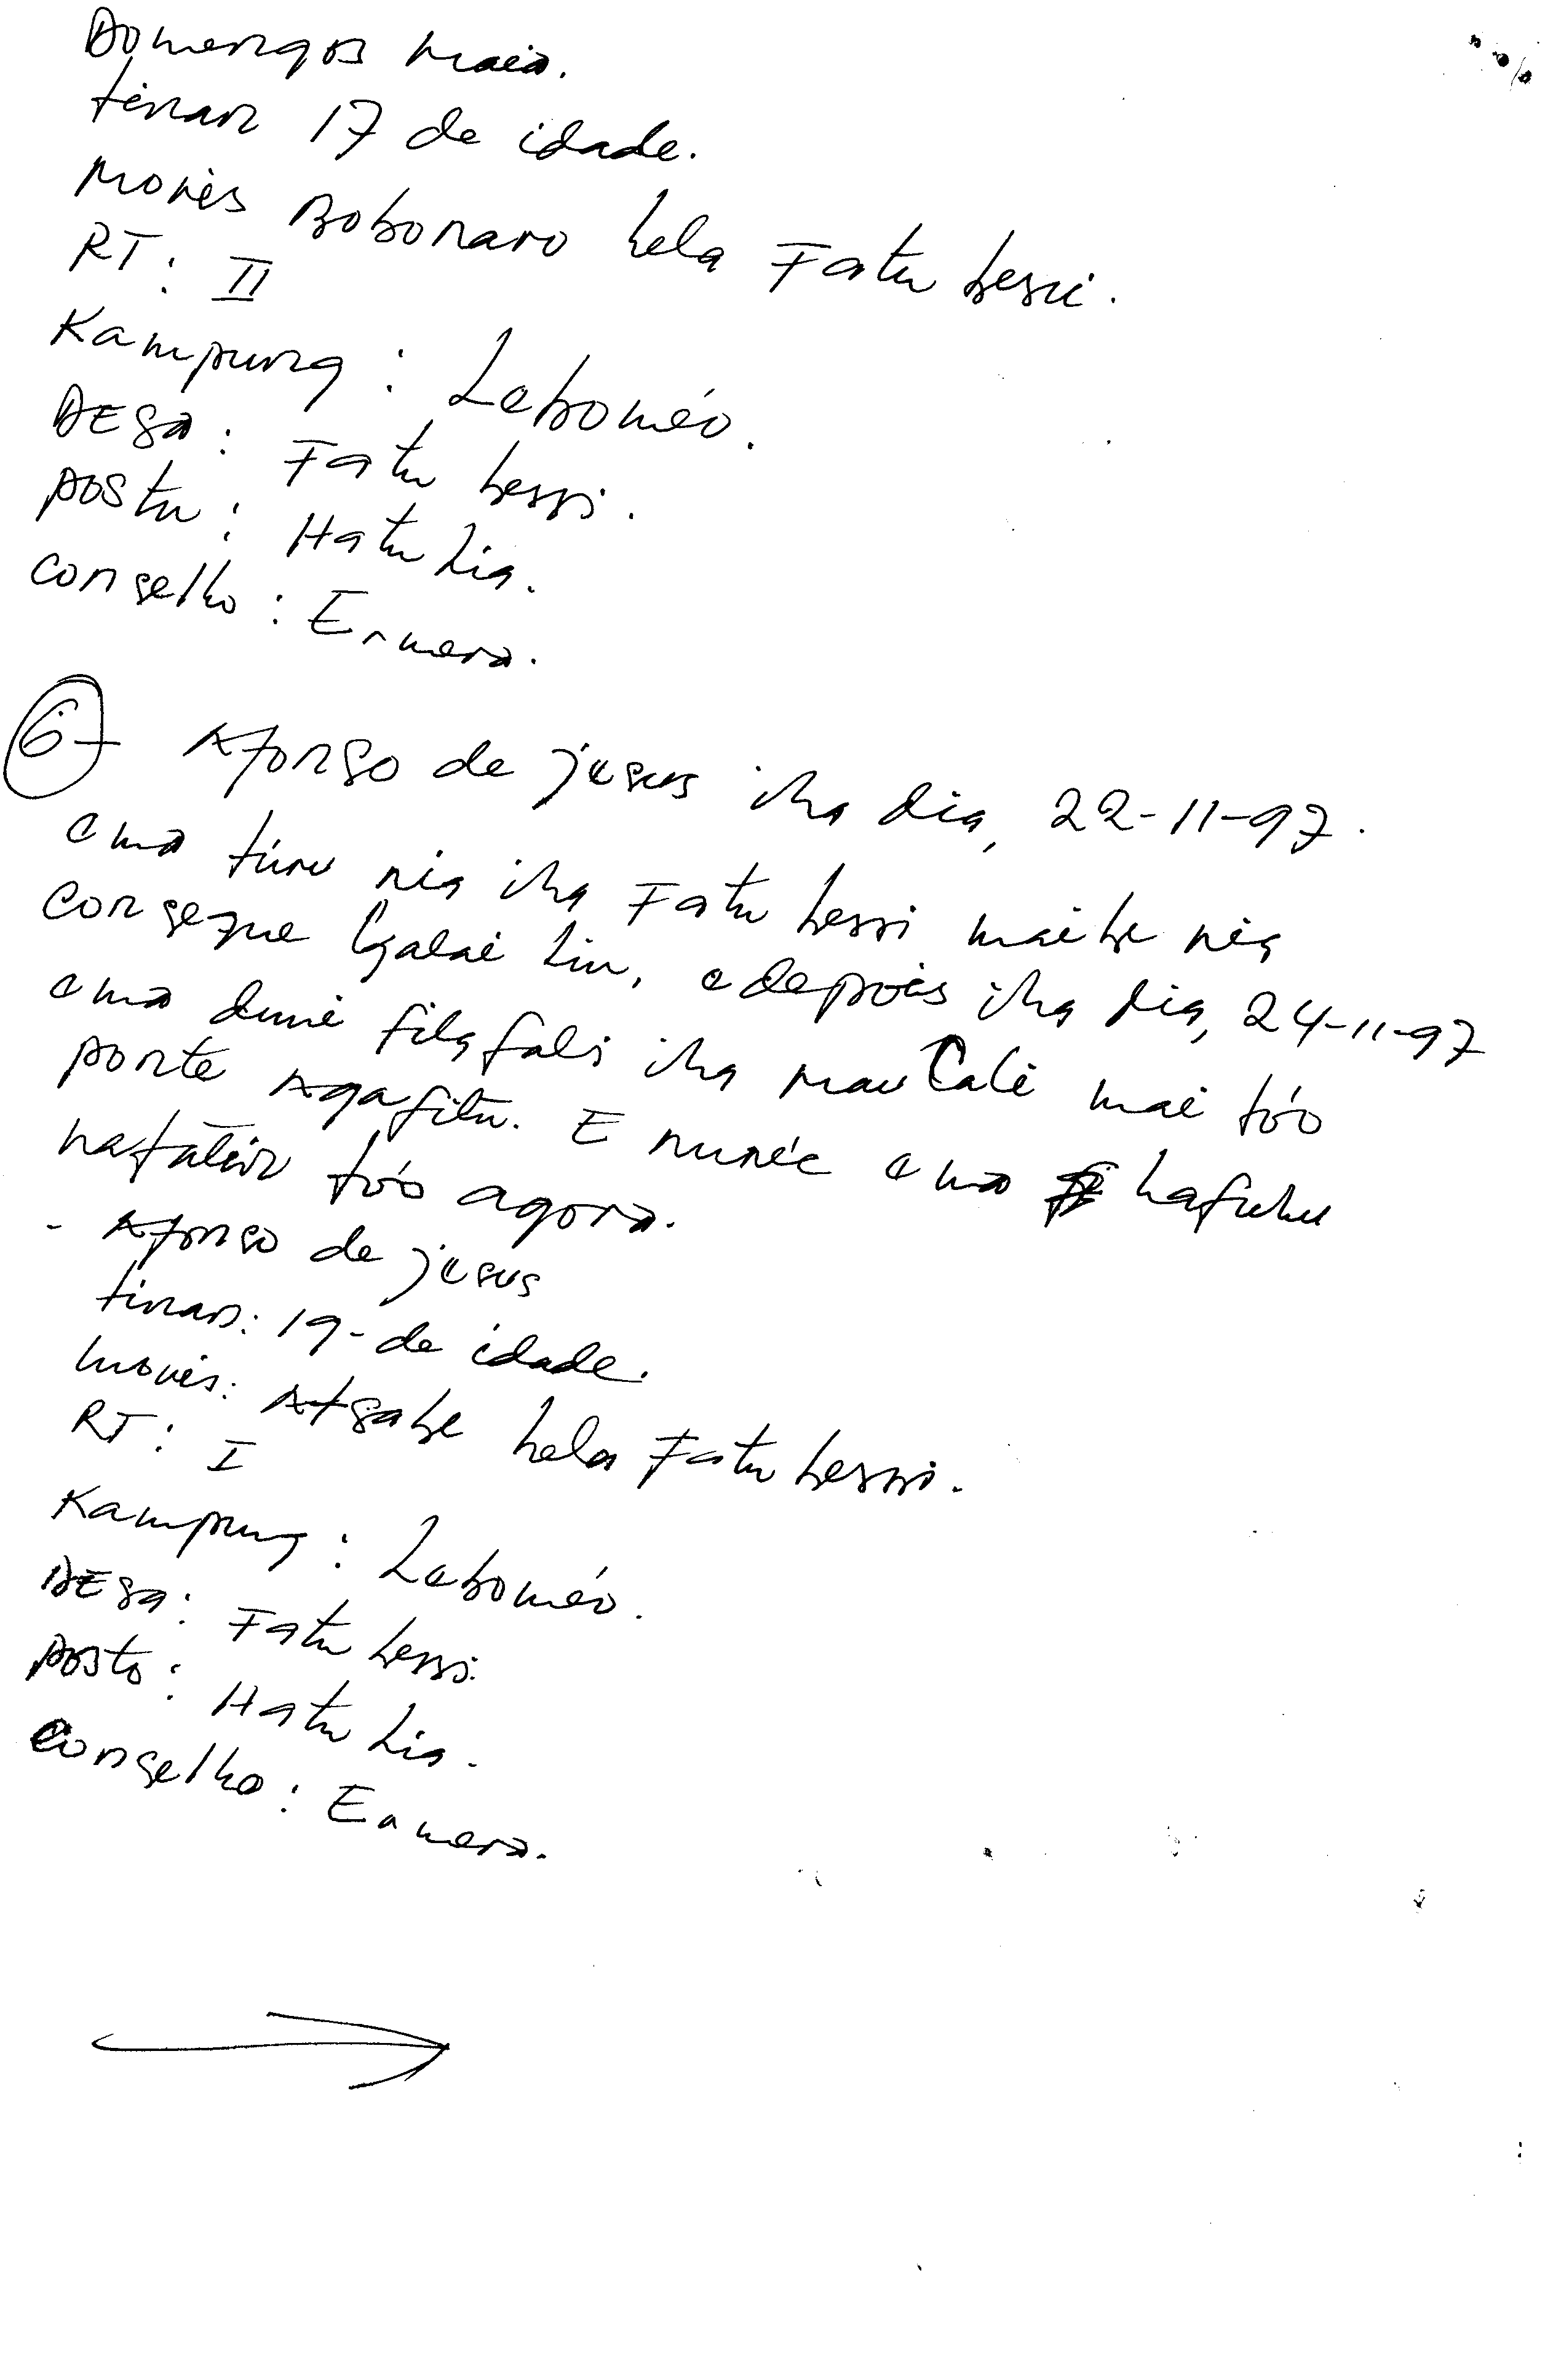 Domengos maia.
tinan 17 de idade.
Moris Bobonaro hela Fatu bessi.
RT: II
Kampung: Leboméo.
DESA: Fatu bessi.
postu: Hatu Lia.
conselho: Ermera.
6- Afonso de jesus iha dia, 22-11-97.
ema túru nia iha Fatu bessi maibe nia
consegue halai liu, e depois iha dia, 24-11-97
ema duni fila fali iha mau Cali mai tó'o
ponte Agafitu. E nuné'e ema hafuhu
nafatin tó'o agora.
- Afonso de jesus
tinan: 19- de idade.
moris: Atsabe hela Fatu bessi.
RT: I
Kampung: Leboméo.
DESA: Fatu bessi.
posto: Hatu Lia.
conselho: Ermera.